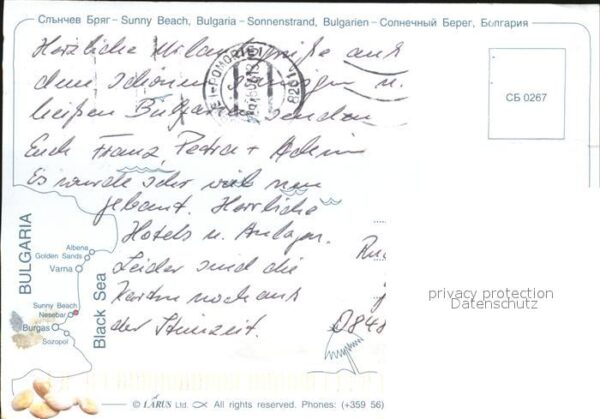 Слънчев Бряг – Sunny Beach, Bulgaria – Sonnenstrand, Bulgarien – Солнечный Берег, Болгария
Herzliche Urlaubsgrüße aus
dem schönen sonnigen u.
heißen Bulgarien senden
Euch Franz, Petra + Achim
Es wurde sehr viel neu
gebaut. Herrliche
Hotels u. Anlagen.
Leider sind die
Karten noch aus
der Steinzeit.
СБ 0267
POMORIE
8201
BULGARIA
Black Sea
Albena
Golden Sands
Varna
Sunny Beach
Nesebar
Burgas
Sozopol
privacy protection
Datenschutz
084
© LARUS Ltd. All rights reserved. Phones: (+359 56)